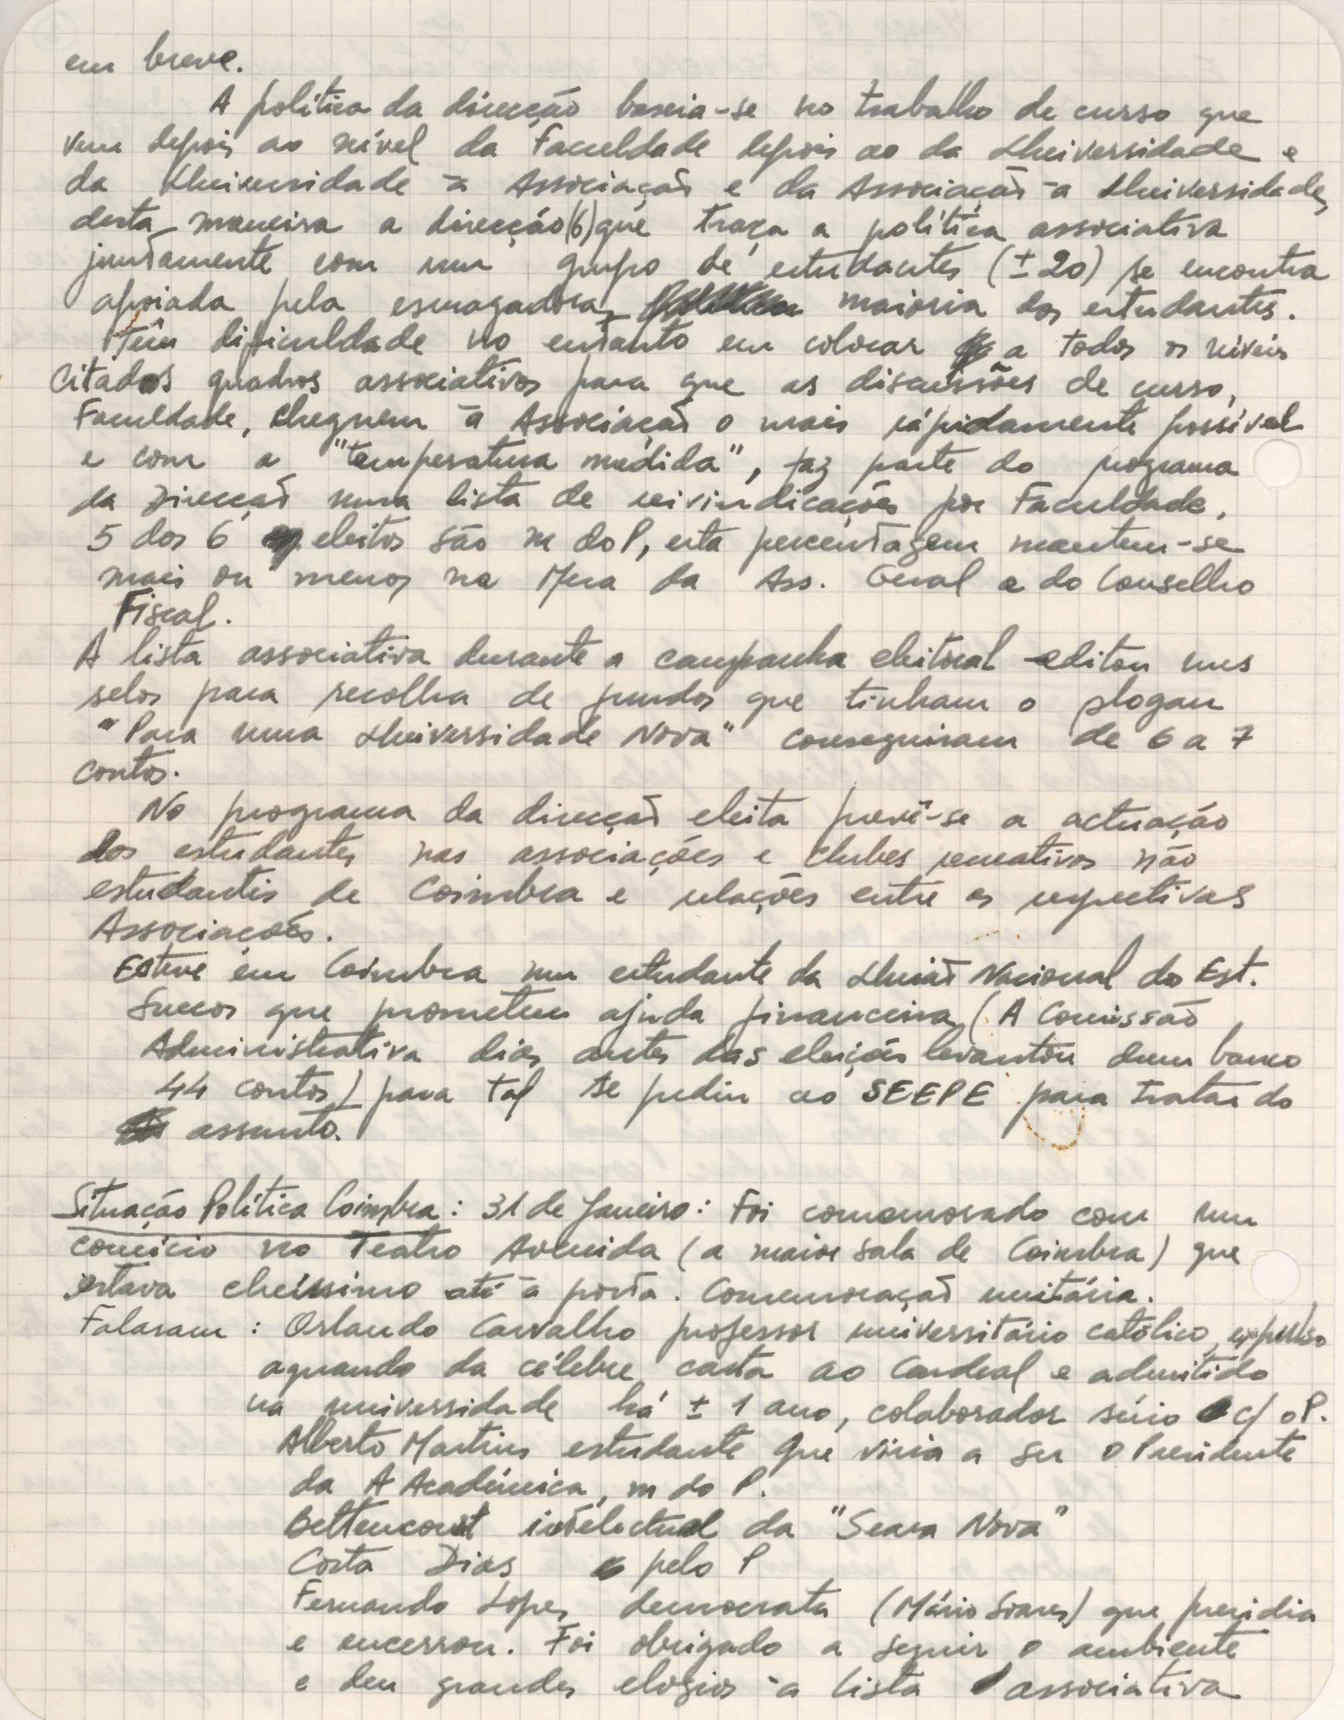 em breve.
A política da direcção baseia-se no trabalho de curso que
vem depois ao nível da Faculdade depois ao da Universidade e
da Universidade à Associação e da Associação à Universidade,
desta maneira a direcção (6) que traça a política associativa
juntamente com um grupo de estudantes (± 20) se encontra
apoiada pela esmagadora maioria dos estudantes.
Têm dificuldade no entanto em colocar a todos os níveis
citados quadros associativos para que as discussões de curso,
Faculdade, cheguem à Associação o mais rápidamente possível
e com a "temperatura medida", faz parte do programa
da Direcção uma lista de reivindicações por Faculdade,
5 dos 6 eleitos são m do P, esta percentagem mantem-se
mais ou menos na Mesa da Ass. Geral e do Conselho
Fiscal.
A lista associativa durante a campanha eleitoral editou uns
selos para recolha de fundos que tinham o slogan
"Para uma Universidade Nova" conseguiram de 6 a 7
contos.
No programa da direcção eleita prevê-se a actuação
dos estudantes nas associações e clubes recreativos não
estudantis de Coimbra e relações entre as respectivas
Associações.
Esteve em Coimbra um estudante da União Nacional do Est.
Suecos que prometeu ajuda financeira (A Comissão
Administrativa dias antes das eleições levantou dum banco
44 contos) para tal se pediu ao SEEPE para tratar do
assunto.
Situação Política Coimbra: 31 de Janeiro: Foi comemorado com um
comício no Teatro Avenida (a maior sala de Coimbra) que
estava cheíssimo até à porta. Comemoração unitária.
Falaram: Orlando Carvalho professor universitário católico, expulso
aquando da célebre carta ao Cardeal e admitido
na universidade há ± 1 ano, colaborador sério c/ o P.
Alberto Martins estudante que viria a ser o Presidente
da A Académica, m do P.
Bettencourt intelectual da "Seara Nova"
Costa Dias pelo P
Fernando Lopes democrata (Mário Soares) que presidia
e encerrou. Foi obrigado a seguir o ambiente
e deu grandes elogios à lista associativa